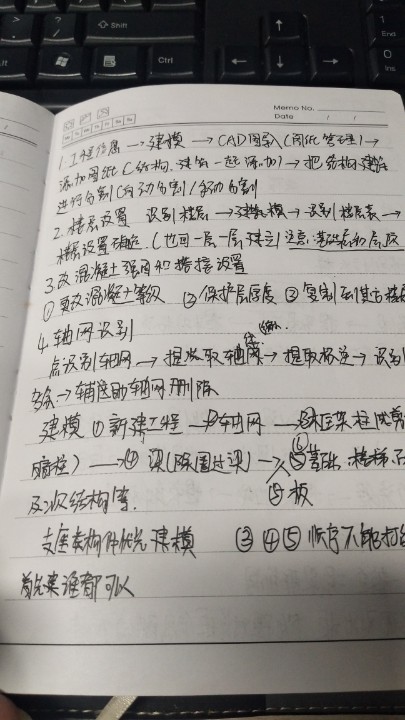 Shift
Alt
Ctrl
End
Ins
Memo No.
Date / /
1.工程信息→建模→CAD图导入(图纸管理)→
添加图纸(结构、建筑一起添加)→把结构建筑
进行分割(自动分割/手动分割
2.楼层设置 识别楼层→建模→识别楼层表→
楼层设置确定.(也可一层一层建立)注意:基础层和层
3.改混凝土强度和搭接设置
①更改混凝土等级 ②保护层厚度 ③复制到其它楼层
4.轴网识别
点识别轴网→提取轴线→提取标注→识别
→辅助轴网删除
建模 ①新建工程→②轴网→③框架柱(或剪
暗柱)→④梁(除圈过梁)→⑥基础、楼梯、
⑤板
及二次结构等.
支座类构件优先建模 ③④⑤顺序不能打
都可以